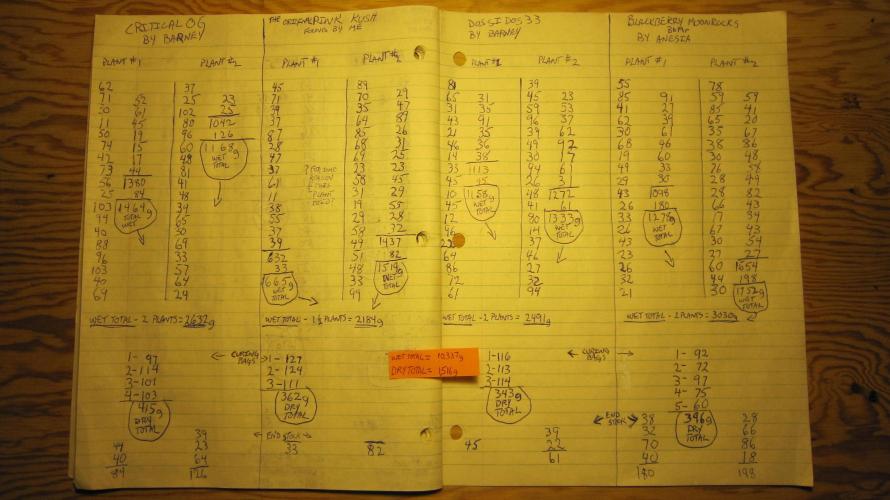 CRITICAL OG
BY BARNEY
PLANT #1
62
71 52
30 61
11 45
50 19
74 15
42 17
73 44
56 1380
25 84
103 1464g
94 TOTAL WET
40
88
96
103
40
64
PLANT #2
37
25 23
102
80 1042
96 126
60 1168g
48 WET TOTAL
81
41
48
34
65
50
69
33
57
64
24
WET TOTAL - 2 PLANTS = 2632g
1- 97
2-114
3-101
4-103
415g
DRY TOTAL
44
40
84
39
23
64
126
THE ORIGINAL PINK KUSH
FOUND BY ME
PLANT #1
45
71
34
37
87
28
47
37
61
11
38
55
37
39
632
33
WET TOTAL
PLANT #2
89
70 29
35 47
64 89
85 26
68 31
69 25
23 23
58 45
31 29
19 55
29 28
58 32
49 1437
51 82
48 1519g
33 WET TOTAL
99
WET TOTAL - 1½ PLANTS = 2184g
← CURING BAGS →
1- 127
2- 124
3- 111
362g
DRY TOTAL
← END STOCK →
33
82
WET TOTAL = 10,337g
DRY TOTAL = 1516g
DOSSI DOS 33
BY BARNEY
PLANT #1
81
65 31
31 35
43 91
21 35
46 36
14 38
33 1113
45 45
10 1158g
45 WET TOTAL
12
46
64
86
12
61
PLANT #2
39
45 23
59 53
96 37
39 62
49 92
30 17
44 61
26 31
48 1272
41 61
80 1333g
14 WET TOTAL
37
46
27
32
94
WET TOTAL - 2 PLANTS = 2491g
1-116
2-113
3-114
343g
DRY TOTAL
45
39
22
61
BLACKBERRY MOONROCKS
BY ANESIA
PLANT #1
55
85 91
41 27
62 39
30 61
68 96
19 60
49 33
29 30
43 1098
26 180
33 1278g
26 WET TOTAL
43
23
26
32
21
PLANT #2
78
59 59
85 41
65 20
35 67
38 86
30 48
76 38
28 49
28 82
66 43
17 34
67 43
30 54
27 27
60 1554
44 198
30 1752g
WET TOTAL
WET TOTAL - 2 PLANTS = 3030g
← CURING BAGS →
1- 92
2- 72
3- 97
4- 75
5- 60
396g
DRY TOTAL
END STOCK
38
32
70
40
180
28
66
86
18
198